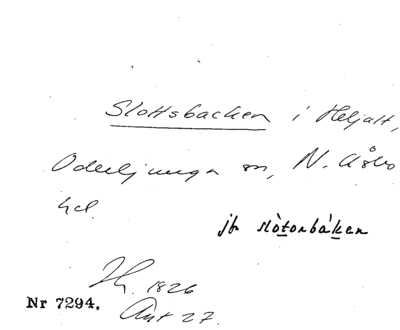 Slottsbacken i Heljalt,
Oderljunga sn, N. Åsbo
hd.
jfr slòtənbákən
Hg. 1826
Ant 27.
Nr 7294.